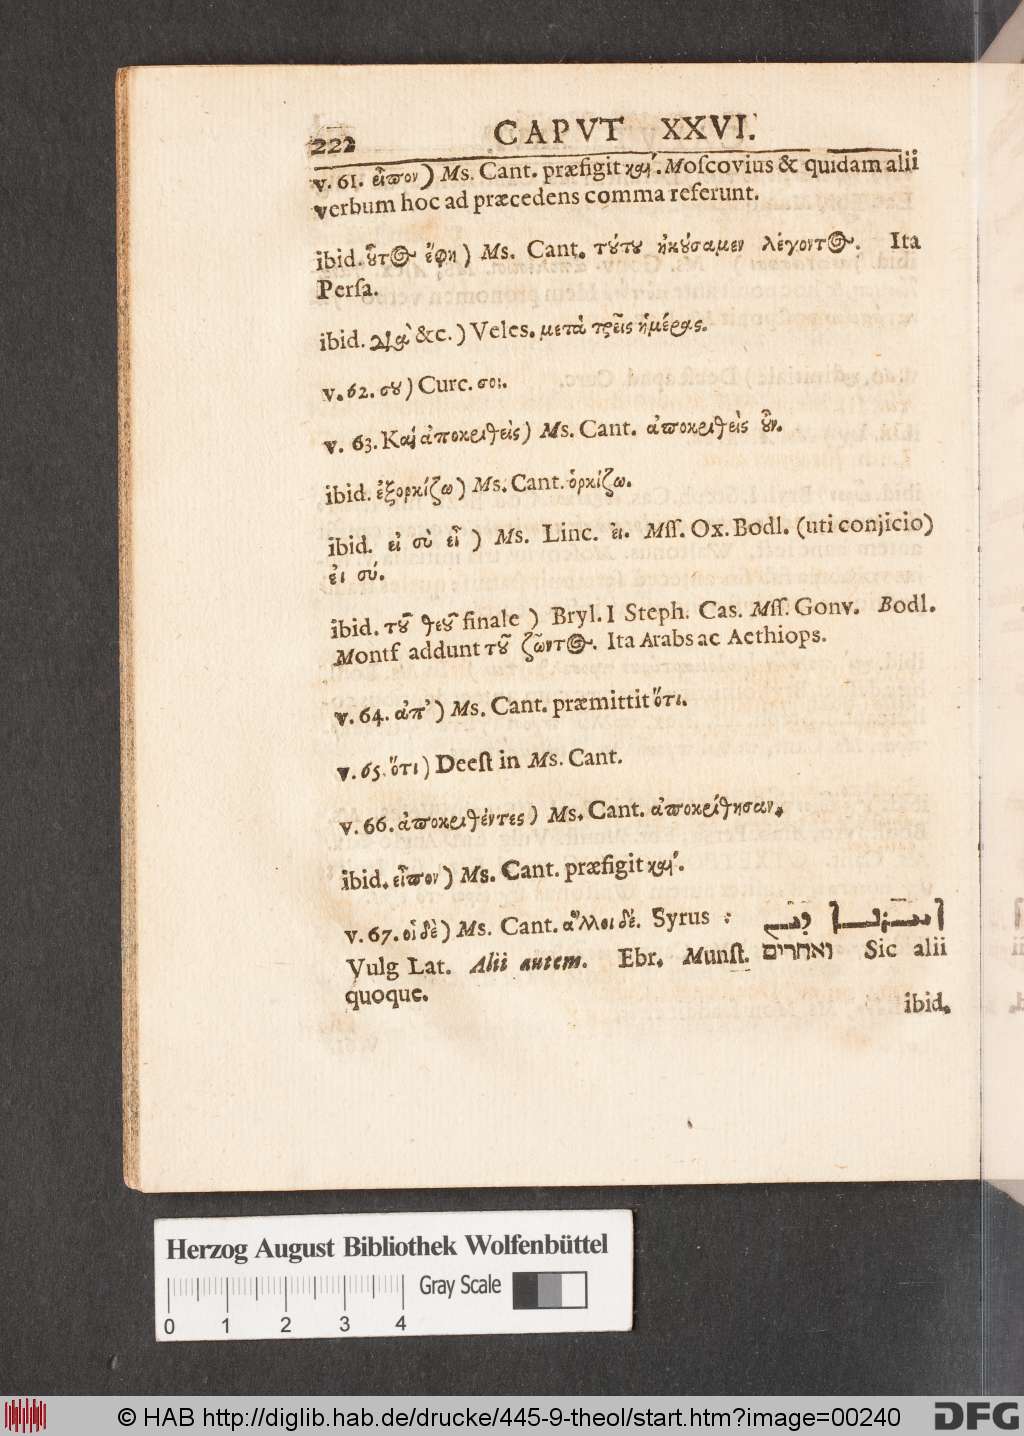 222 CAPVT XXVI.
v. 61. εἶπον) Ms. Cant. præfigit καὶ. Moſcovius & quidam alii
verbum hoc ad præcedens comma referunt.
ibid. οὗτος ἔφη) Ms. Cant. τούτου ἠκούσαμεν λέγοντος. Ita
Perſa.
ibid. διὰ &c.) Veles. μετὰ τρεῖς ἡμέρας.
v. 62. σου) Curc. σοι.
v. 63. Καὶ ἀποκριθεὶς) Ms. Cant. ἀποκριθεὶς οὖν.
ibid. ἐξορκίζω) Ms. Cant. ὁρκίζω.
ibid. εἰ σὺ εἶ ) Ms. Linc. ἐι. Mſſ. Ox. Bodl. (uti conjicio)
ἐι σύ.
ibid. τοῦ θεοῦ finale ) Bryl. I Steph. Cas. Mſſ. Gonv. Bodl.
Montf addunt τοῦ ζῶντος. Ita Arabs ac Aethiops.
v. 64. ἀπ᾽) Ms. Cant. præmittit ὅτι.
v. 65. ὅτι) Deeſt in Ms. Cant.
v. 66. ἀποκριθέντες) Ms. Cant. ἀποκρίθησαν.
ibid. εἶπον) Ms. Cant. præfigit καὶ.
v. 67. οἱ δὲ) Ms. Cant. ἄλλοι δέ. Syrus :
Vulg Lat. Alii autem. Ebr. Munſt. ואחרים Sic alii
quoque.
ibid.
Herzog August Bibliothek Wolfenbüttel
Gray Scale
0 1 2 3 4
© HAB http://diglib.hab.de/drucke/445-9-theol/start.htm?image=00240 DFG